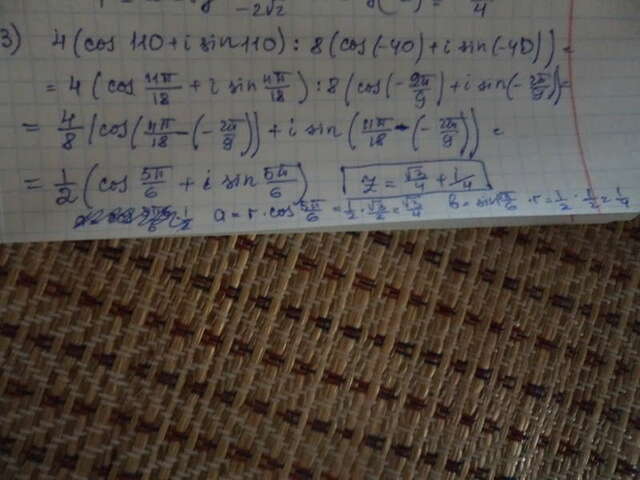 -2√2
4
3) 4(cos 110 + i sin 110) : 8(cos(-40) + i sin(-40)) =
= 4(cos 11π/18 + i sin 11π/18) : 8(cos(-2π/9) + i sin(-2π/9)) =
= 4/8 (cos(11π/18 - (-2π/9)) + i sin(11π/18 - (-2π/9)) =
= 1/2 (cos 5π/6 + i sin 5π/6) z = √3/4 + 1/4
a = r · cos 5π/6 = 1/2 · √3/2 = √3/4 b = sin 5π/6 · r = 1/2 · 1/2 = 1/4